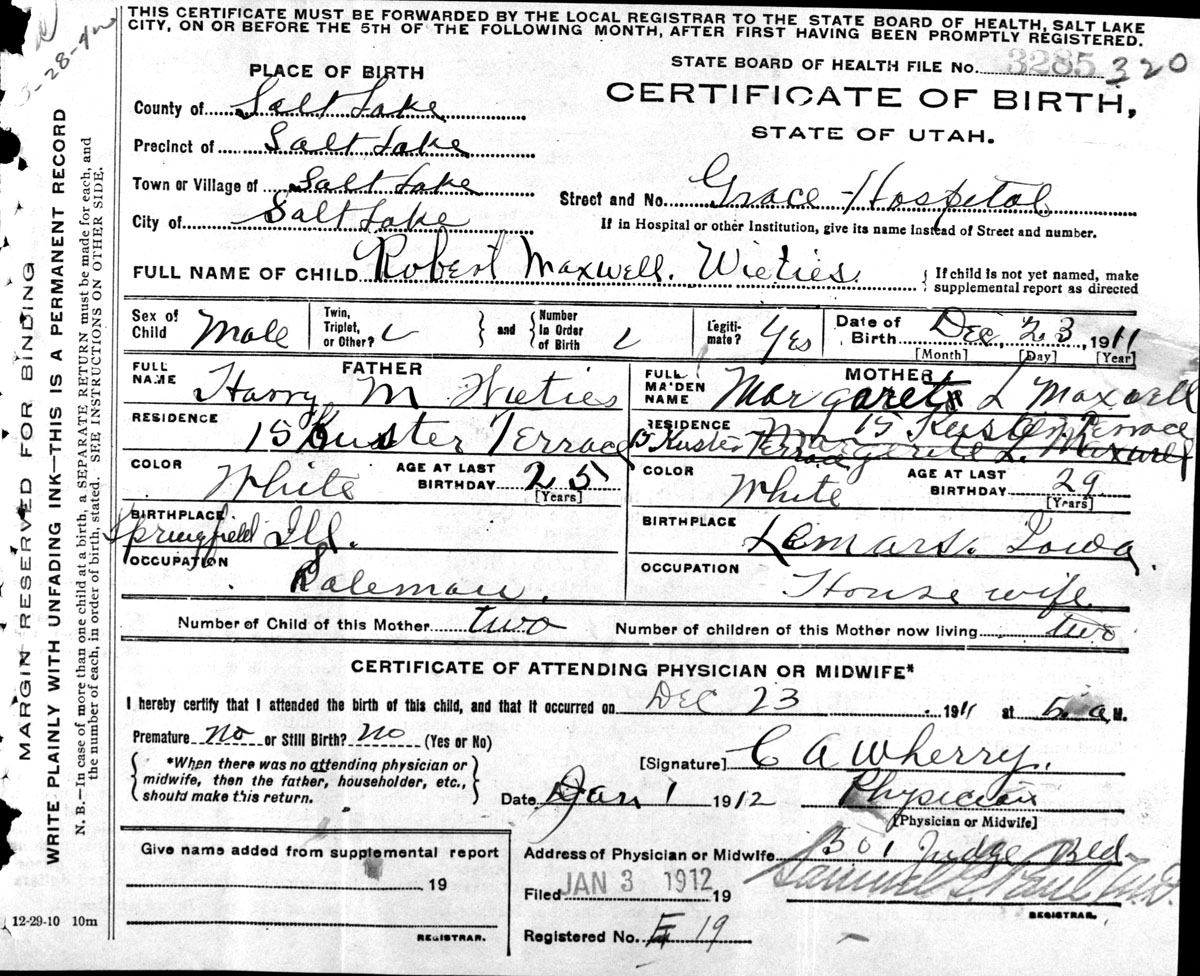 THIS CERTIFICATE MUST BE FORWARDED BY THE LOCAL REGISTRAR TO THE STATE BOARD OF HEALTH, SALT LAKE
CITY, ON OR BEFORE THE 5TH OF THE FOLLOWING MONTH, AFTER FIRST HAVING BEEN PROMPTLY REGISTERED.
STATE BOARD OF HEALTH FILE No. 3285 320
PLACE OF BIRTH
CERTIFICATE OF BIRTH,
STATE OF UTAH.
County of Salt Lake
Precinct of Salt Lake
Town or Village of Salt Lake
City of Salt Lake
Street and No. Grace Hospital
If in Hospital or other Institution, give its name instead of Street and number.
FULL NAME OF CHILD Robert Maxwell. Wieties
If child is not yet named, make
supplemental report as directed
Sex of Child Male
Twin, Triplet, or Other?
and
Number In Order of Birth
Legiti-mate? Yes
Date of Birth Dec, 23, 1911
[Month] [Day] [Year]
FATHER
FULL NAME Harry M Wieties
RESIDENCE 15 Kuster Terrace
COLOR White
AGE AT LAST BIRTHDAY 25
[Years]
BIRTHPLACE
Springfield Ill.
OCCUPATION
MOTHER
FULL MAIDEN NAME Margaret L Maxwell
RESIDENCE 15 Kuster Terrace
15 Kuster Terrace
COLOR White
AGE AT LAST BIRTHDAY 29
[Years]
BIRTHPLACE Lemars. Iowa
OCCUPATION House wife
Number of Child of this Mother two
Number of children of this Mother now living two
CERTIFICATE OF ATTENDING PHYSICIAN OR MIDWIFE*
I hereby certify that I attended the birth of this child, and that it occurred on Dec 23 1911 at 5 a M.
Premature no or Still Birth? no (Yes or No)
*When there was no attending physician or
midwife, then the father, householder, etc.,
should make this return.
[Signature] C A Wherry.
Date Jan 1 1912 Physician
[Physician or Midwife]
Give name added from supplemental report
19
REGISTRAR.
Address of Physician or Midwife 501 Judge Bld
Filed JAN 3 1912 19
Samuel G. Paul M.D.
REGISTRAR.
Registered No. F 19
12-29-10 10m
MARGIN RESERVED FOR BINDING
WRITE PLAINLY WITH UNFADING INK—THIS IS A PERMANENT RECORD
N. B.—In case of more than one child at a birth, a SEPARATE RETURN must be made for each, and
the number of each, in order of birth, stated. SEE INSTRUCTIONS ON OTHER SIDE.